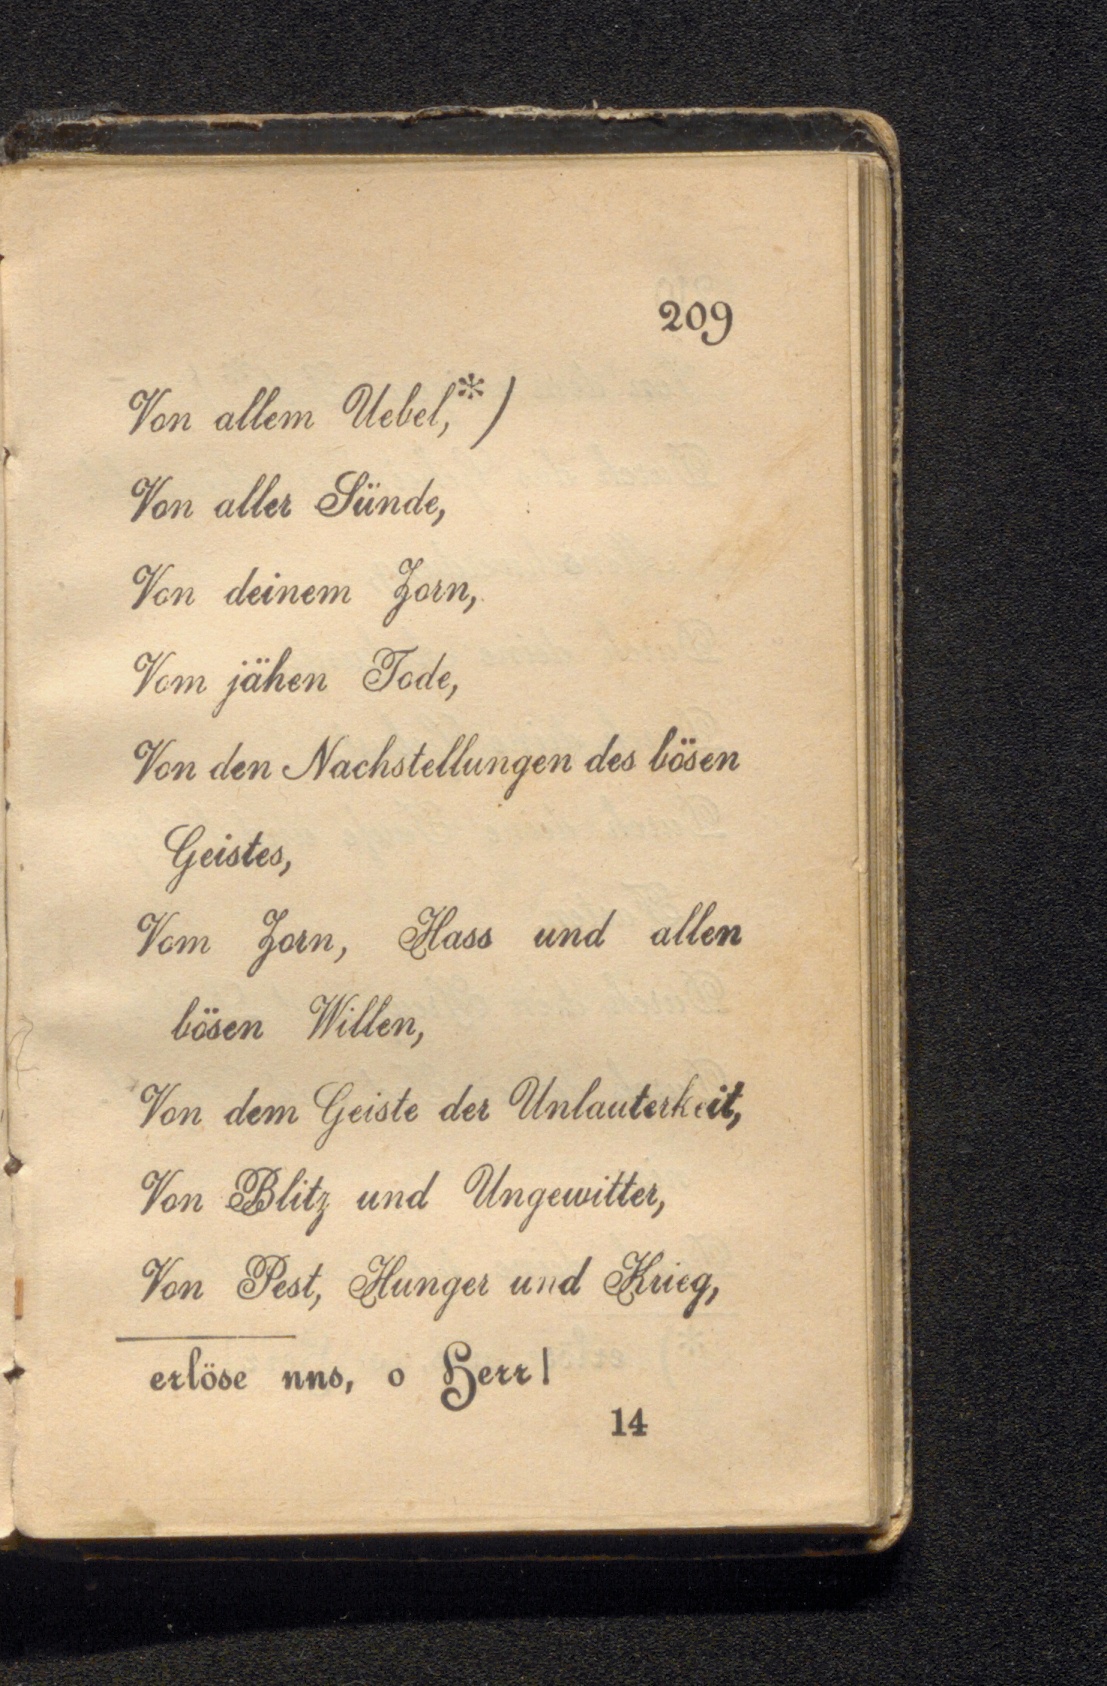 209
Von allem Uebel,*)
Von aller Sünde,
Von deinem Zorn,
Vom jähen Tode,
Von den Nachstellungen des bösen
Geistes,
Vom Zorn, Hass und allen
bösen Willen,
Von dem Geiste der Unlauterkeit,
Von Blitz und Ungewitter,
Von Pest, Hunger und Krieg,
erlöse nns, o Herr!
14